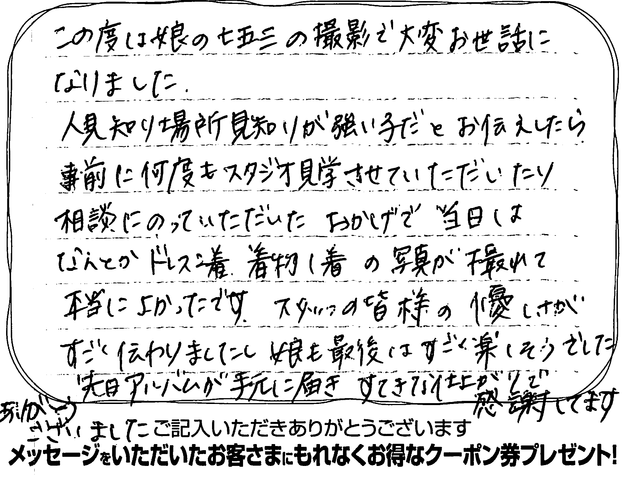 この度は娘の七五三の撮影で大変お世話に
なりました.
人見知り場所見知りが強い子だとお伝えしたら
事前に何度もスタジオ見学させていただいたり
相談にのっていただいた おかげで 当日は
なんとか ドレス2着 着物1着 の写真が撮れて
本当によかったです. スタッフの皆様の優しさが
すごく伝わりましたし 娘も最後はすごく楽しそうでした
先日アルバムが手元に届き すてきな仕上がりで
感謝してます
ありがとう
ございました
ご記入いただきありがとうございます
メッセージをいただいたお客さまにもれなくお得なクーポン券プレゼント!